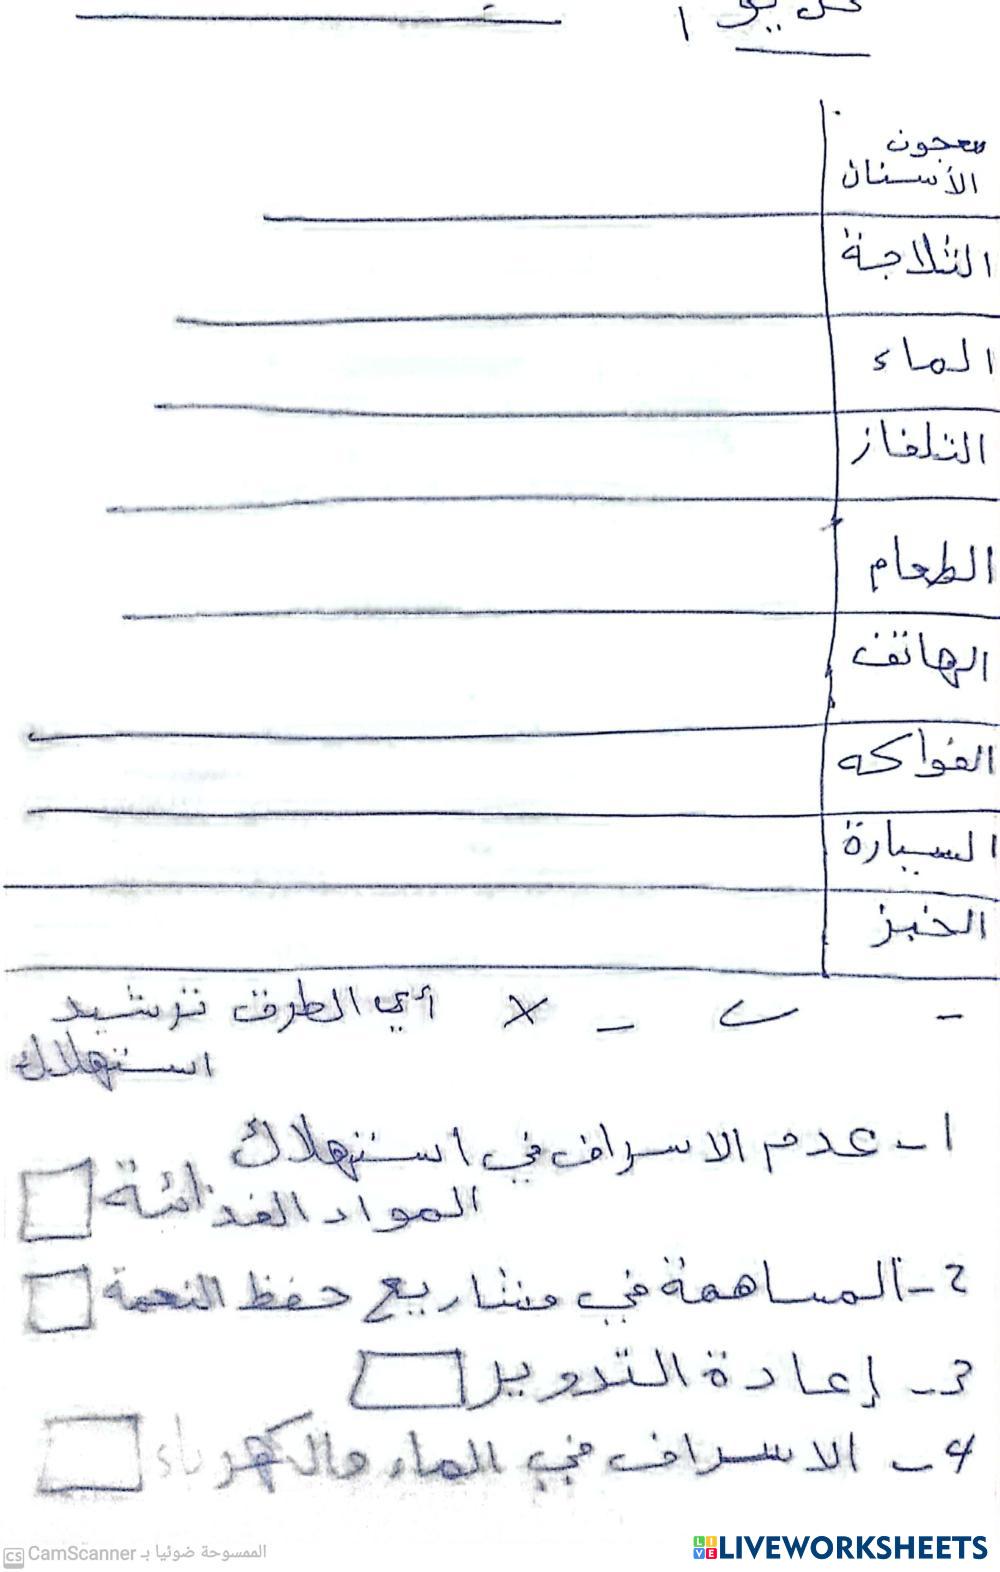 معجون
الأسنان
الثلاجة
الماء
التلفاز
الطعام
الهاتف
الفواكه
السيارة
الخبز
- ✓ - × أي الطرق ترشيد
استهلاك
1- عدم الاسراف في استهلاك
المواد الغذائة
2- المساهمة في مشاريع حفظ النعمة
3- إعادة التدوير
4- الاسراف في الماء والكهرباء
الممسوحة ضوئيا بـ CamScanner
LIVEWORKSHEETS